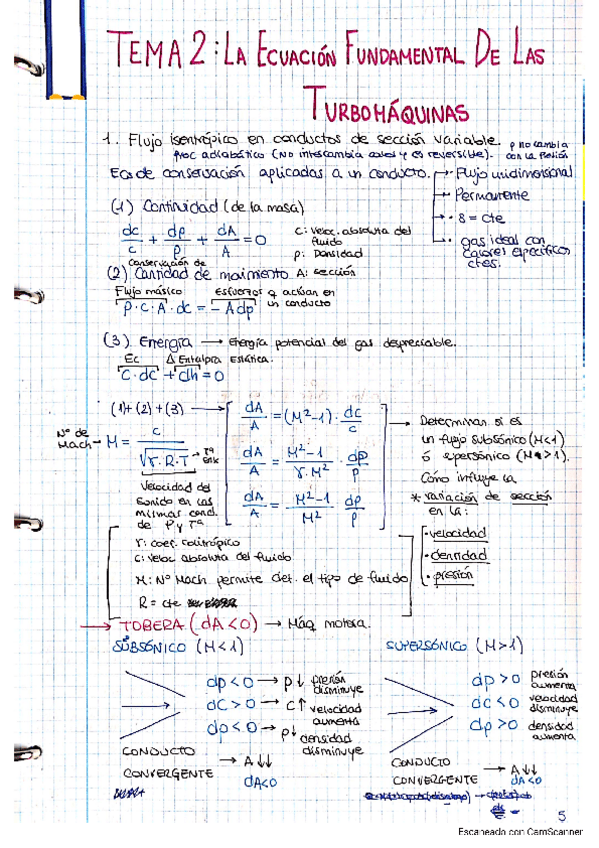 TEMA 2: LA ECUACIÓN FUNDAMENTAL DE LAS
TURBOMÁQUINAS
1. Flujo isentrópico en conductos de sección variable. ρ no cambia
proc adiabático (No intercambia calor y es reversible). con la presión
Ecs de conservación aplicadas a un conducto. → Flujo unidimensional
→ Permanente
(1) Continuidad (de la masa)
→ · γ = cte
dc/c + dρ/ρ + dA/A = 0
c: Veloc. absoluta del
fluido
ρ: Densidad
A: Sección
→ · gas ideal con
calores específicos
ctes.
Conservación de
(2) Cantidad de movimiento
Flujo másico
Esfuerzos q actúan en
un conducto
ρ·c·A·dc = - A dp
(3) Energía → Energía potencial del gas despreciable.
Ec Δ Entalpia Estática.
c·dc + dh = 0
(1)+(2)+(3) →
dA/A = (M²-1)·dc/c
dA/A = M²-1/γ·M² · dp/p
dA/A = M²-1/M² dρ/ρ
Nº de
Mach → M = c/√γ·R·T
Velocidad del
sonido en las
mismas cond.
de P y Tª
→ Determinar si es
un flujo subsónico (M<1)
ó supersónico (M>1).
Cómo influye la
* variación de sección
en la:
· velocidad
· densidad
· presión
γ: coef. politrópico
c: veloc absoluta del fluido
M: Nº Mach permite det. el tipo de fluido
R = cte
→ TOBERA (dA<0) → Máq motora.
SUBSÓNICO (M<1)
dp<0 → p↓ presión
disminuye
dc>0 → c↑ velocidad
aumenta
dρ<0 → ρ↓ densidad
disminuye
CONDUCTO
CONVERGENTE
→ A↓↓
dA<0
SUPERSÓNICO (M>1)
dp>0 presión
aumenta
dc<0 velocidad
disminuye
dρ>0 densidad
aumenta
CONDUCTO
CONVERGENTE
→ A↓↓
dA<0
5
Escaneado con CamScanner